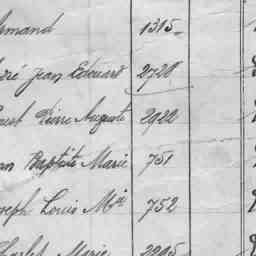 Armand 1315
André Jean Edouard 2728
Ernest Pierre Auguste 2922
Jean Baptiste Marie 751
Joseph Louis Mie 752
Charles Marie